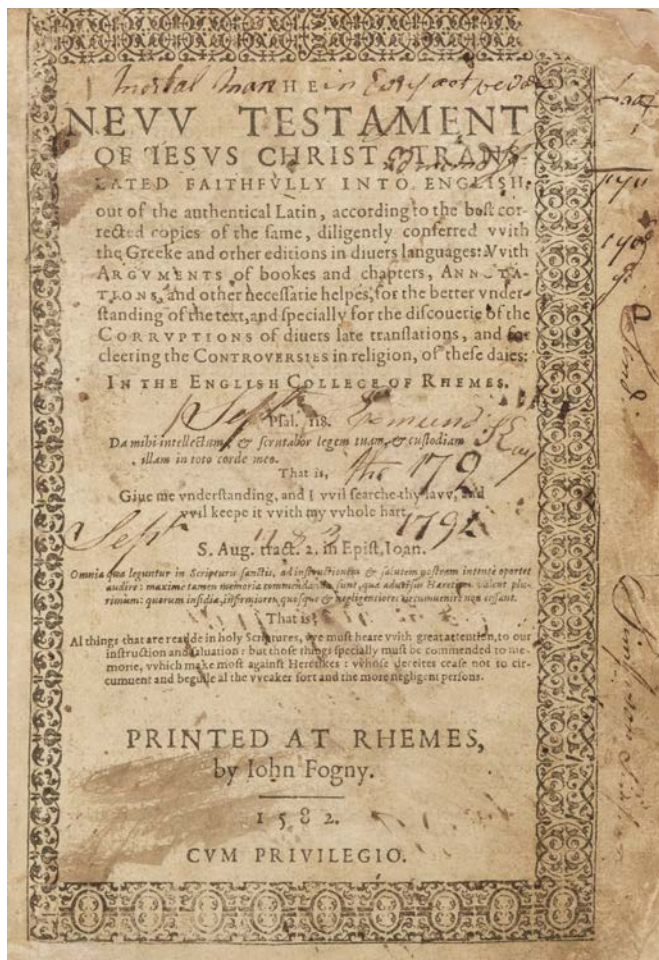 mortal man HE in Every
NEVV TESTAMENT
OF IESVS CHRIST, TRANS-
LATED FAITHFVLLY INTO ENGLISH,
out of the authentical Latin, according to the best cor-
rected copies of the same, diligently conferred vvith
the Greeke and other editions in diuers languages: Vvith
ARGVMENTS of bookes and chapters, ANNOTA-
TIONS, and other necessarie helpes, for the better vnder-
standing of the text, and specially for the discouerie of the
CORRVPTIONS of diuers late translations, and for
cleering the CONTROVERSIES in religion, of these daies:
IN THE ENGLISH COLLEGE OF RHEMES.
Sept Edmund Kay
Psal. 118.
Da mihi intellectum, & scrutabor legem tuam, & custodiam
illam in toto corde meo.
That is,
the 179
Giue me vnderstanding, and I vvil searche thy lavv, and
vvil keepe it vvith my vvhole hart.
Sept 1792
S. Aug. tract. 2. in Epist. Ioan.
Omnia quæ leguntur in Scripturis sanctis, ad instructionem & salutem nostram intentè oportet
audire: maximè tamen memoriæ commendanda sunt, quæ aduersus Hæreticos valent plu-
rimùm: quorum insidiæ, infirmiores quosque & negligentiores circumuenire non cessant.
That is,
Al things that are readde in holy Scriptures, vve must heare vvith great attention, to our
instruction and saluation: but those things specially must be commended to me-
morie, vvhich make most against Heretikes: vvhose deceites cease not to cir-
cumuent and beguile al the vveaker sort and the more negligent persons.
PRINTED AT RHEMES,
by Iohn Fogny.
1582.
CVM PRIVILEGIO.